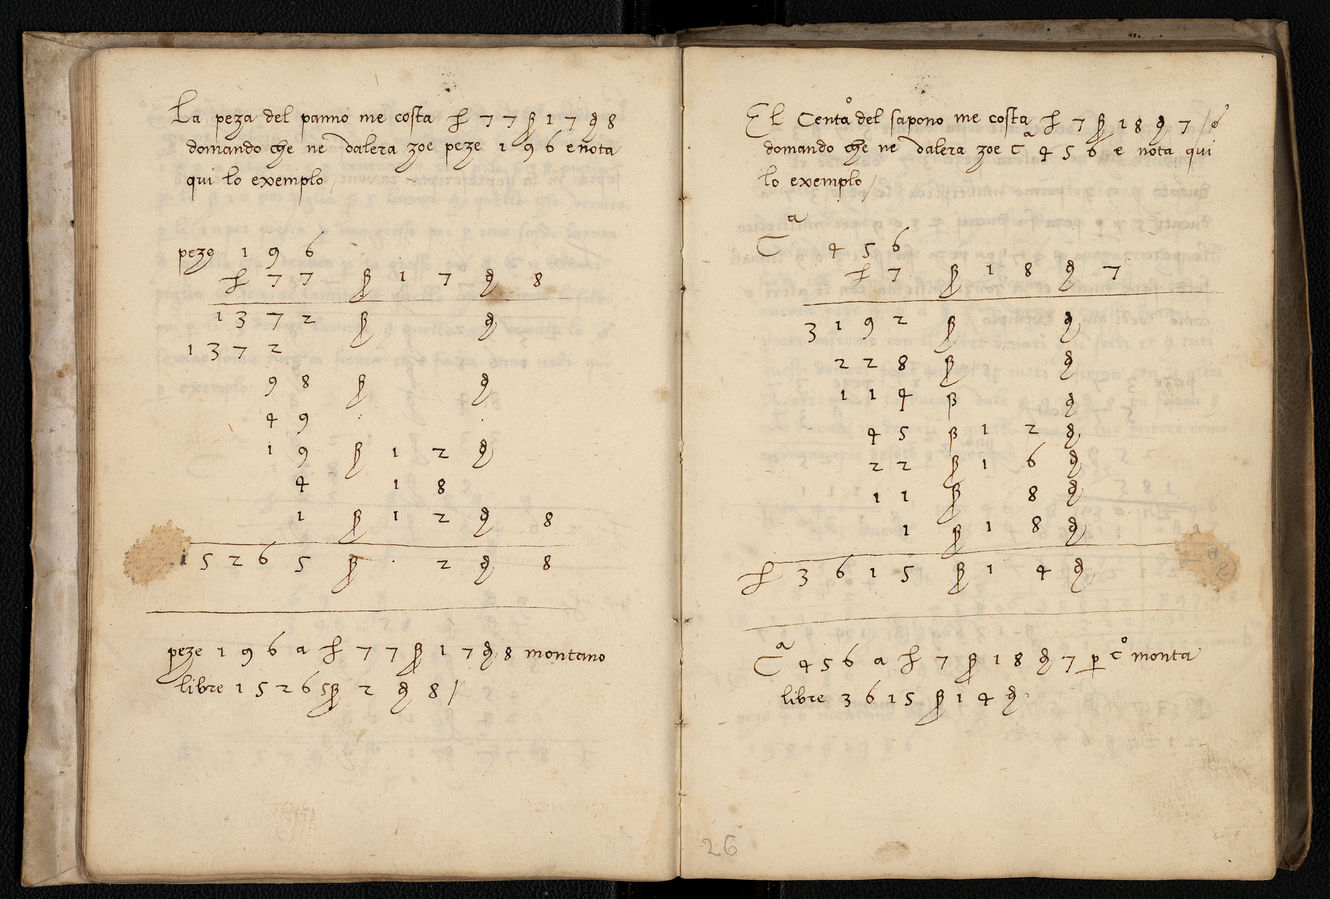 La peza del panno me costa ₶ 7 7 ẞ 1 7 ₰ 8
domando che ne dalera zoe peze 1 9 6 e nota
qui lo exemplo /
peze 1 9 6
₶ 7 7 ẞ 1 7 ₰ 8
1 3 7 2 ẞ ₰
1 3 7 2
9 8 ẞ ₰
4 9
1 9 ẞ 1 2 ₰
4 1 8
1 ẞ 1 2 ₰ 8
1 5 2 6 5 ẞ · 2 ₰ 8
peze 1 9 6 a ₶ 7 7 ẞ 1 7 ₰ 8 montano
libre 1 5 2 6 5 ẞ 2 ₰ 8 /
El Cento del sapono me costa ₶ 7 ẞ 1 8 ₰ 7 / e
domando che ne dalera zoe Cᵃ 4 5 6 e nota qui
lo exemplo /
Cᵃ 4 5 6
₶ 7 ẞ 1 8 ₰ 7
3 1 9 2 ẞ ₰
2 2 8 ẞ ₰
1 1 4 ẞ ₰
4 5 ẞ 1 2 ₰
2 2 ẞ 1 6 ₰
1 1 ẞ 8 ₰
1 ẞ 1 8 ₰
₶ 3 6 1 5 ẞ 1 4 ₰
Cᵃ 4 5 6 a ₶ 7 ẞ 1 8 ₰ 7 ꝑ Cº monta
libre 3 6 1 5 ẞ 1 4 ₰
26